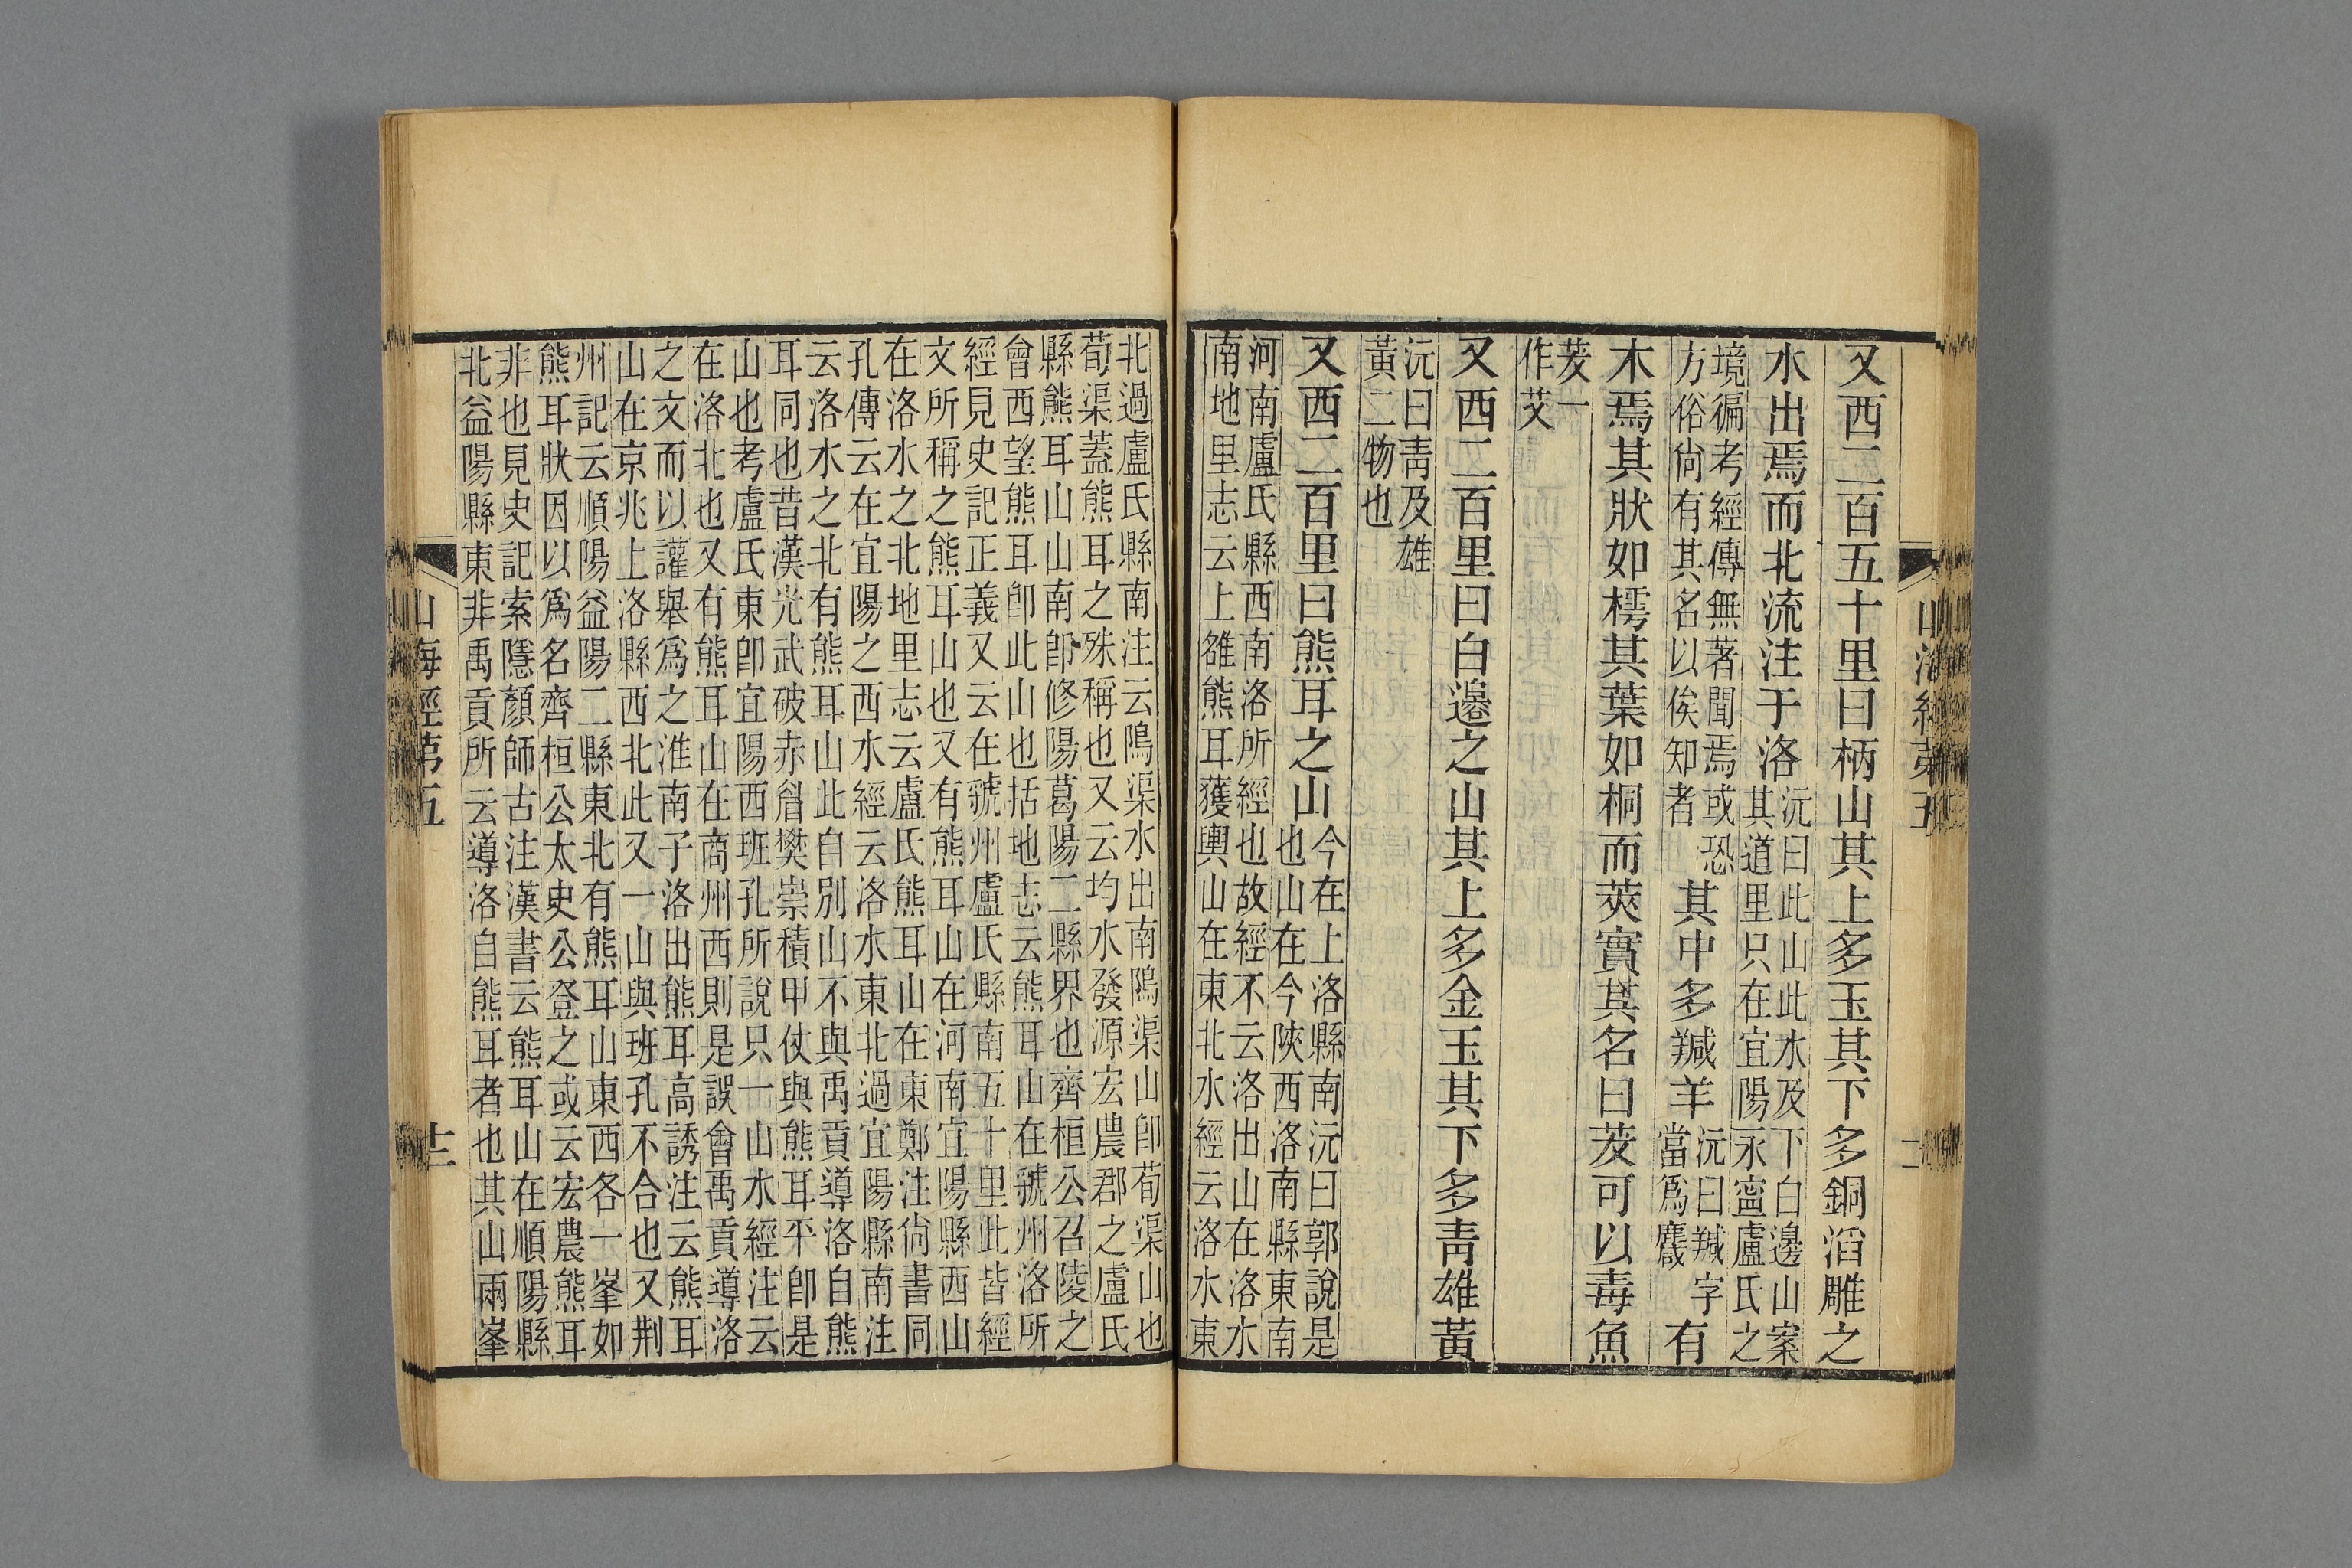 山海經第五
又西二百五十里曰柄山其上多玉其下多銅滔雕之
水出焉而北流注于洛
沅曰此山此水及下白邊山案
其道里只在宜陽永寧盧氏之
境徧考經傳無著聞焉或恐
方俗尚有其名以俟知者
其中多羬羊
沅曰羬字
當爲麙
有
木焉其狀如樗其葉如桐而莢實其名曰茇可以毒魚
茇一
作艾
又西二百里曰白邊之山其上多金玉其下多靑雄黃
沅曰靑及雄
黃二物也
又西二百里曰熊耳之山
今在上洛縣南沅曰郭說是
也山在今陝西洛南縣東南
河南盧氏縣西南洛所經也故經不云洛出山在洛水
南地里志云上雒熊耳獲輿山在東北水經云洛水東
北過盧氏縣南注云隝渠水出南隝渠山卽荀渠山也
荀渠蓋熊耳之殊稱也又云均水發源宏農郡之盧氏
縣熊耳山山南卽修陽葛陽二縣界也齊桓公召陵之
會西望熊耳卽此山也括地志云熊耳山在虢州洛所
經見史記正義又云在虢州盧氏縣南五十里此皆經
文所稱之熊耳山也又有熊耳山在河南宜陽縣西山
在洛水之北地里志云盧氏熊耳山在東鄭注尚書同
孔傳云在宜陽之西水經云洛水東北過宜陽縣南注
云洛水之北有熊耳山此自別山不與禹貢導洛自熊
耳同也昔漢光武破赤眉樊崇積甲仗與熊耳平卽是
山也考盧氏東卽宜陽西班孔所說只一山水經注云
在洛北也又有熊耳山在商州西則是誤會禹貢導洛
之文而以讙舉爲之淮南子洛出熊耳高誘注云熊耳
山在京兆上洛縣西北此又一山與班孔不合也又荆
州記云順陽益陽二縣東北有熊耳山東西各一峯如
熊耳狀因以爲名齊桓公太史公登之或云宏農熊耳
非也見史記索隱顏師古注漢書云熊耳山在順陽縣
北益陽縣東非禹貢所云導洛自熊耳者也其山兩峯
山海經第五
十二